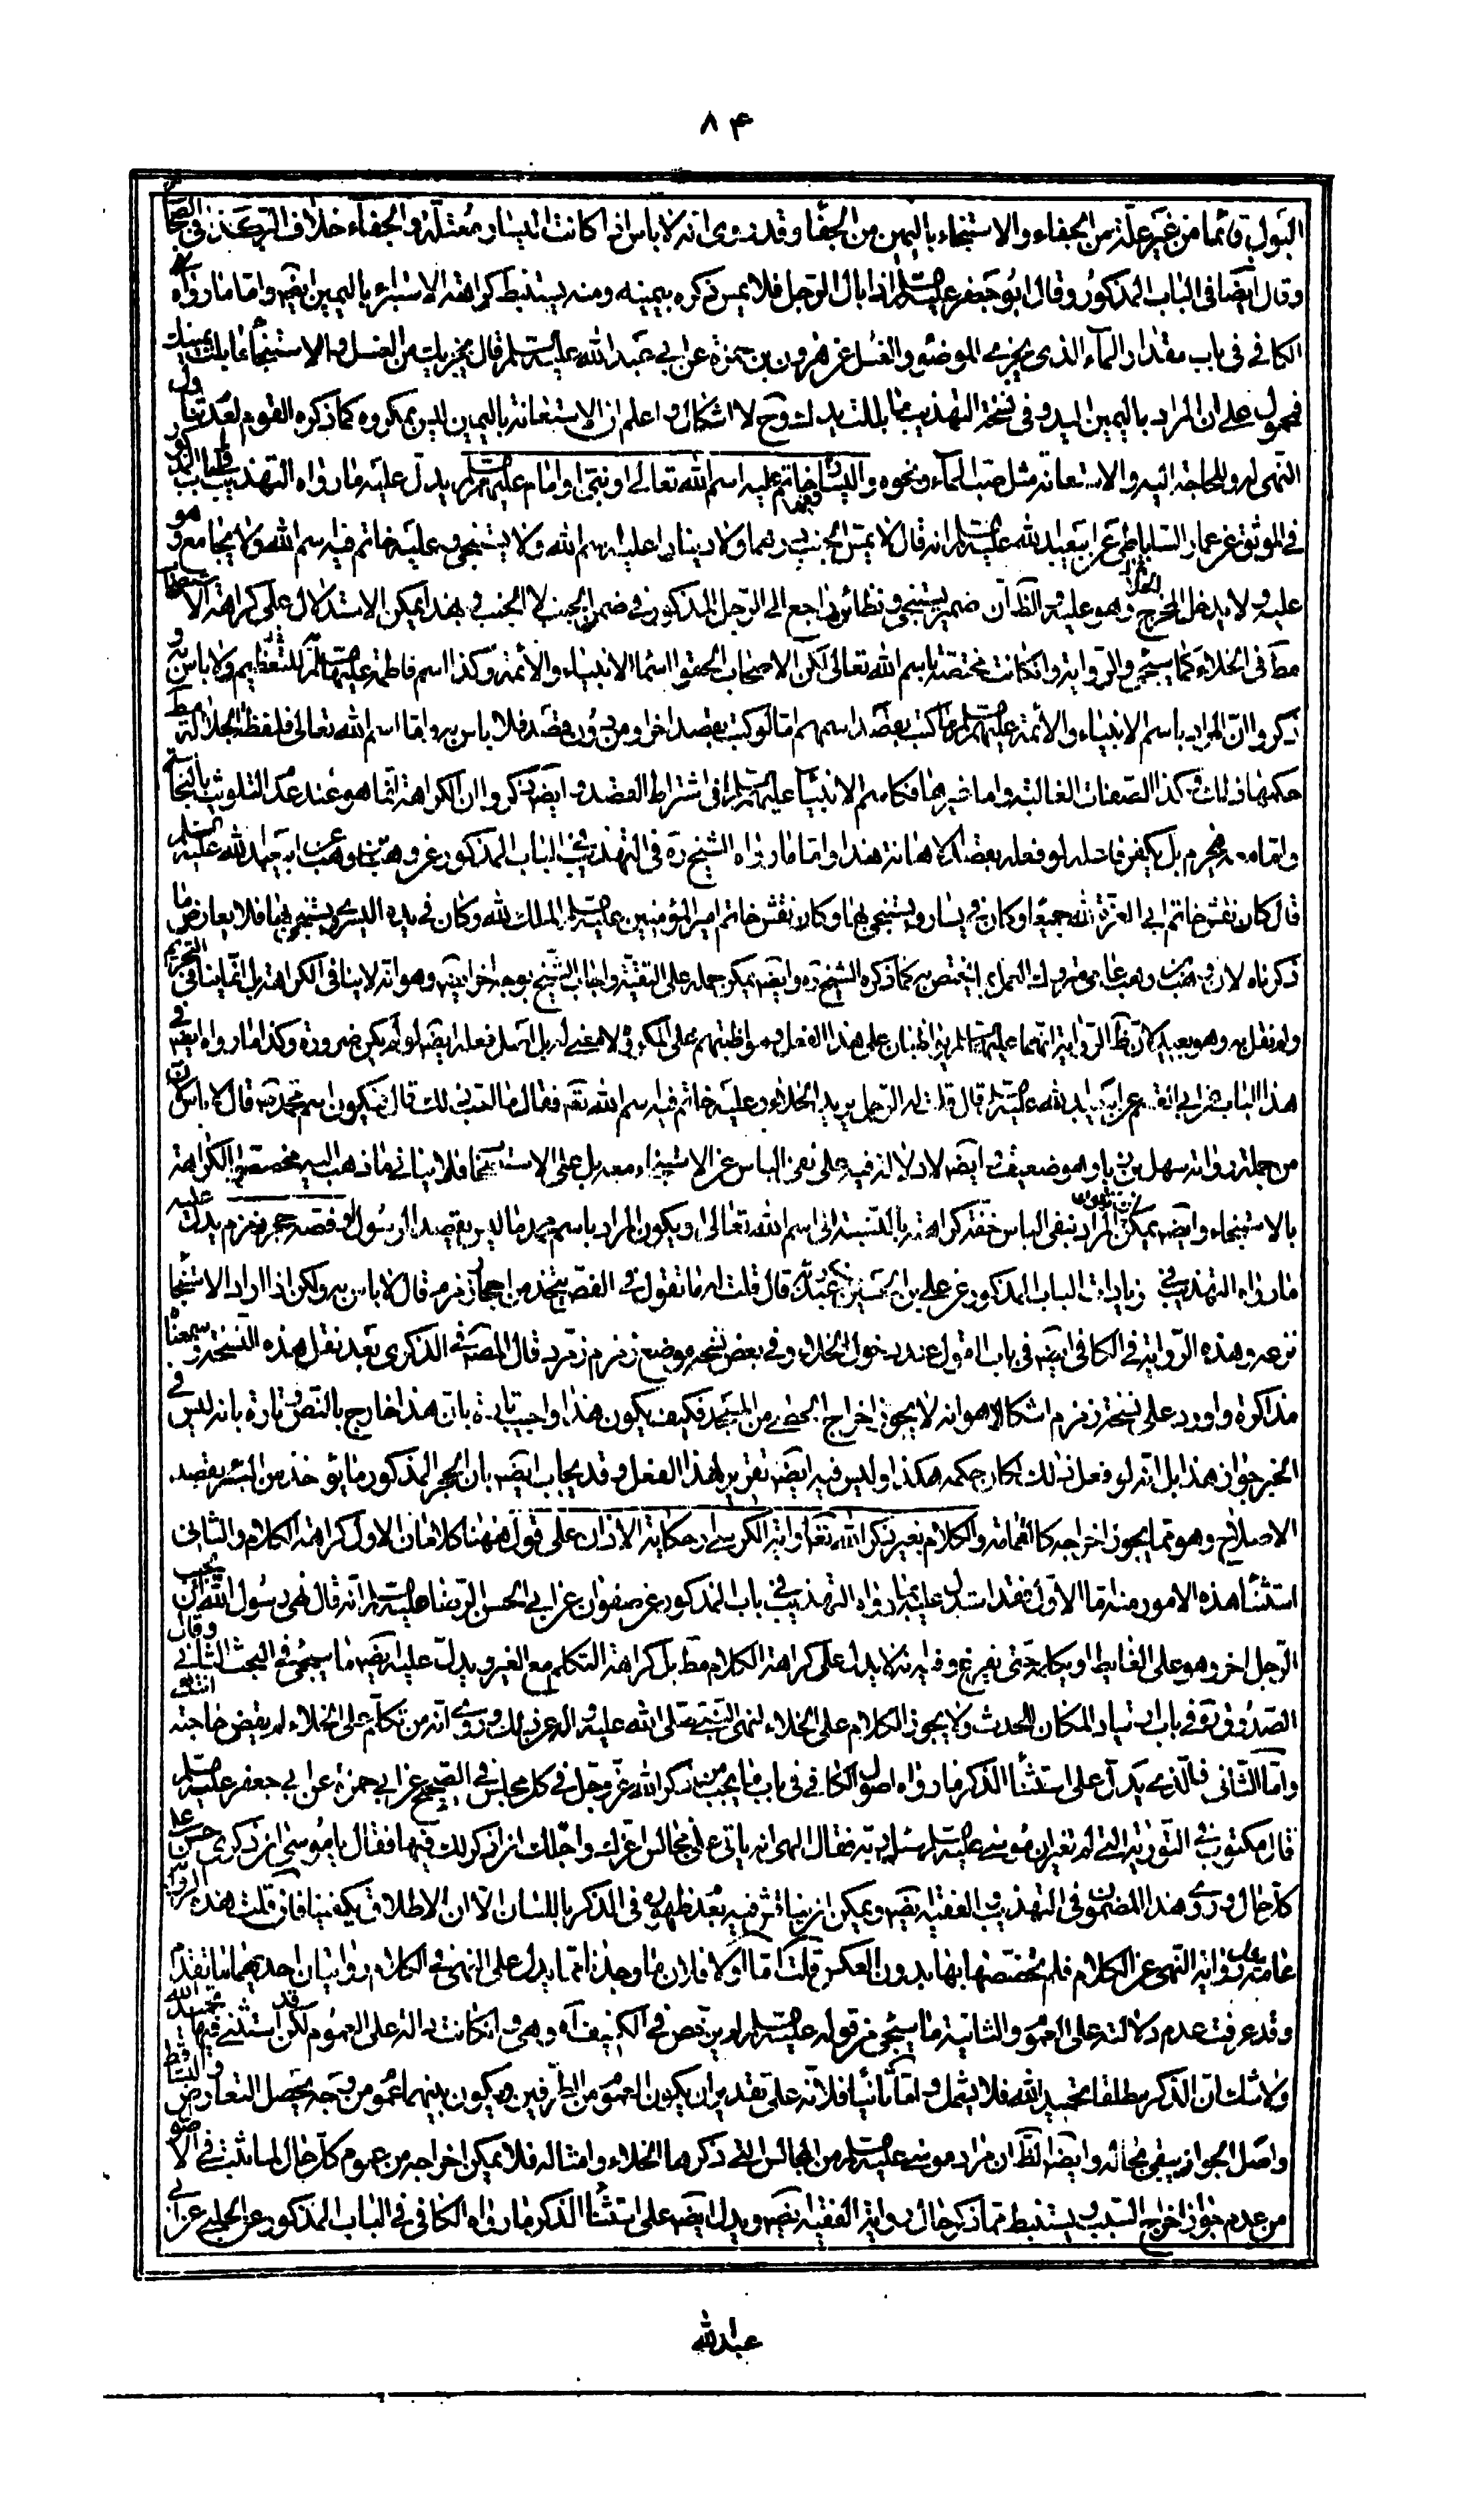 ٨۴
البول قائما من غير علة من الجفاء والاستنجاء باليمين من الجفا وقد روى انه لا باس اذا كانت اليسار معتلة والجفاء خلاف البر كذا فى الصحا
وقال ايضا فى الباب المذكور وقال ابو جعفر عليه السلم اذا بال الرجل فلا يمس ذكره بيمينه ومنه يستنبط كراهة الاستبراء باليمين ايضه واما ما رواه
الكافى فى باب مقدار الماء الذى يجزى للوضوء والغسل عن هرون بن حمزة عن ابى عبد الله عليه السلم قال يجزيك من الغسل والاستنجاء ما بلت يمينك
فمحمول على ان المراد باليمين اليد وفى نسخة التهذيب ما بللت يدك وح لا اشكال واعلم ان الاستعانة باليمين ليس بمكروه كما ذكره القوم لعدم تناول
النهى له وللحاجة اليه والاستعانة مثل صب الماء ونحوه واليسار وفيها خاتم عليه اسم الله تعالى او نبى او امام عليهم السلم يدل عليه ما رواه التهذيب فى الباب المذكور
فى الموثق عن عمار الساباطى عن ابى عبد الله عليه السلم انه قال لا يمس الجنب درهما ولا دينارا عليه اسم الله ولا يستنجى وعليه خاتم فيه اسم الله ولا يجامع وهو
عليه ولا يدخل المخرج وهو عليه والظ ان ضمير يستنجى ونظائره راجع الى الرجل المذكور فى ضمن الجنب لا الجنب وبهذا يمكن الاستدلال على كراهة الاستصحاب
مط فى الخلاء كما سيجئ والرواية وان كانت مختصة باسم الله تعالى لكن الاصحاب الحقوا اسماء الانبياء والائمة وكذا اسم فاطمة عليها السلم للتعظيم ولا باس به و
ذكروا ان المراد باسم الانبياء والائمة عليهم السلم ما كتب بقصد اسمهم اما لو كتب بقصد اخر او من دون قصد فلا باس به واما اسم الله تعالى فلفظ الجلالة مط
حكمها ذلك وكذا الصفات الغالبة واما غيرها فكاسم الانبياء عليهم السلم فى اشتراط القصد وايضه ذكروا ان الكراهة انما هو عند عدم التلويث بالنجاسة
واما معه فيحرم بل يكفر فاعله لو فعله بقصد الاهانة هذا واما ما رواه الشيخ ره فى التهذيب فى الباب المذكور عن وهب بن وهب عن ابى عبد الله عليه السلم
قال كان نقش خاتم ابى العزة لله جميعا وكان فى يساره يستنجى بها وكان نقش خاتم امير المؤمنين عليه السلم الملك لله وكان فى يده اليسرى ويستنجى بها فلا يعارض ما
ذكرناه لان وهب بن وهب عامى متروك العمل بما يختص به كما ذكره الشيخ ره وايضه يمكن حمله على التقية واجاب الشيخ بوجه اخر ايضه وهو انه لا ينافى الكراهة بل انما ينافى التحريم
ولم نقل به وهو بعيد لان ظ الرواية انهما عليهما السلم يواظبان على هذا الفعل ومواظبتهم على المكروه لا معنى له بل اصل فعله ايضه لو لم يكن ضرورة وكذا ما رواه ايضه فى
هذا الباب عن ابى القسم عن ابى عبد الله عليه السلم قال قلت له الرجل يريد الخلاء وعليه خاتم فيه اسم الله تعه فقال ما احب ذلك قال فيكون اسم محمد ص قال لا باس لان
من جملة رواته سهل بن زياد وهو ضعيف وايضه لا دلالة فيه على نفى الباس عن الاستنجاء معه بل على الاستصحاب فلا ينافى ما ذهب اليه مخصصوا الكراهة
بالاستنجاء وايضه يمكن ان يكون المراد بنفى الباس خفة كراهته بالنسبة الى اسم الله تعالى او يكون المراد باسم محمد ما ليس بقصد الرسول او فصه حجر زمزم يدل عليه
ما رواه التهذيب فى زيادات الباب المذكور عن على بن الحسين بن عبد ربه قال قلت له ما تقول فى الفص يتخذ من احجار زمزم قال لا باس به ولكن اذا اراد الاستنجا
نزعه وهذه الرواية فى الكافى ايضه فى باب القول عند دخول الخلاء وفى بعض نسخه موضع زمزم زمرد قال المصه فى الذكرى بعد نقل هذه النسخة وسمعناه
مذاكرة واورد على نسخة زمزم اشكال هو انه لا يجوز اخراج الحصى من المسجد فكيف يكون هذا واجيب تارة بان هذا خارج بالنص وتارة بانه ليس فى
الخبر جواز هذا بل انه لو فعل ذلك لكان حكمه هكذا وليس فيه ايضه تقرير لهذا الفعل وقد يجاب ايضه بان الحجر المذكور ما يؤخذ من البئر بقصد
الاصلاح وهو مما يجوز اخراجه كالقمامة والكلام بغير ذكر الله تعه او اية الكرسى او حكاية الاذان على قول فههنا كلامان الاول كراهة الكلام والثانى
استثناء هذه الامور منه اما الاول فقد استدل عليه بما رواه التهذيب فى باب المذكور عن صفوان عن ابى الحسن الرضا عليه السلم انه قال نهى رسول الله ان يجيب
الرجل اخر وهو على الغايط او يكلمه حتى يفرغ وفيه انه لا يدل على كراهة الكلام مط بل كراهة التكلم مع الغير ويدل عليه ايضه ما سيجئ فى البحث الثانى وقال
الصدوق ره فى باب ارتياد المكان للحدث ولا يجوز الكلام على الخلاء لنهى النبى صلى الله عليه واله عن ذلك وروى انه من تكلم على الخلاء لم يقض حاجته انتهى
واما الثانى فالذى يدل على استثناء الذكر ما رواه اصول الكافى فى باب ما يجب من ذكر الله عز وجل فى كل مجلس فى الصحيح عن ابى حمزة عن ابى جعفر عليه السلم
قال مكتوب فى التورية التى لم تغير ان موسى عليه السلم سئل ربه فقال الهى انه ياتى على مجالس اعزك واجلك ان اذكرك فيها فقال يا موسى ان ذكرى حسن على
كل حال وروى هذا المضمون فى التهذيب والفقيه ايضه ويمكن ان يناقش فيه بعد ظهوره فى الذكر باللسان الا ان الاطلاق يكفينا فان قلت هذه الرواية
عامة ورواية النهى عن الكلام فلم تخصصها بها بدون العكس قلت اما اولا فلان ما وجدنا مما يدل على النهى فى الكلام روايتان احدهما ما تقدم
وقد عرفت عدم دلالته على العموم والثانية ما سيجئ من قوله عليه السلم لم يرخص فى الكنيف اه وهى وان كانت دالة على العموم لكن قد استثنى فيها تحميد الله
ولا شك ان الذكر مطلقا تحميد الله فلا يشمله واما ثانيا فلانه على تقدير ان يكون العموم من الطرفين ويكون بينهما عموم من وجه يحصل التعارض والتساقط
واصل الجواز يبقى بحاله وايضه الظ ان مراد موسى عليه السلم من المجالس التى ذكرها الخلاء وامثاله فلا يمكن اخراجه من عموم كل حال لما ثبت فى الاصول
من عدم جواز اخراج السبب ويستنبط مما ذكر حال رواية الفقيه ايضه ويدل ايضه على استثناء الذكر ما رواه الكافى فى الباب المذكور عن الحلبى عن ابى
عبد الله